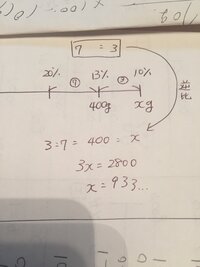 7 = 3
20% 13% 10%
⑦ ③
400g xg
逆比
3:7 = 400 : x
3x = 2800
x = 933...